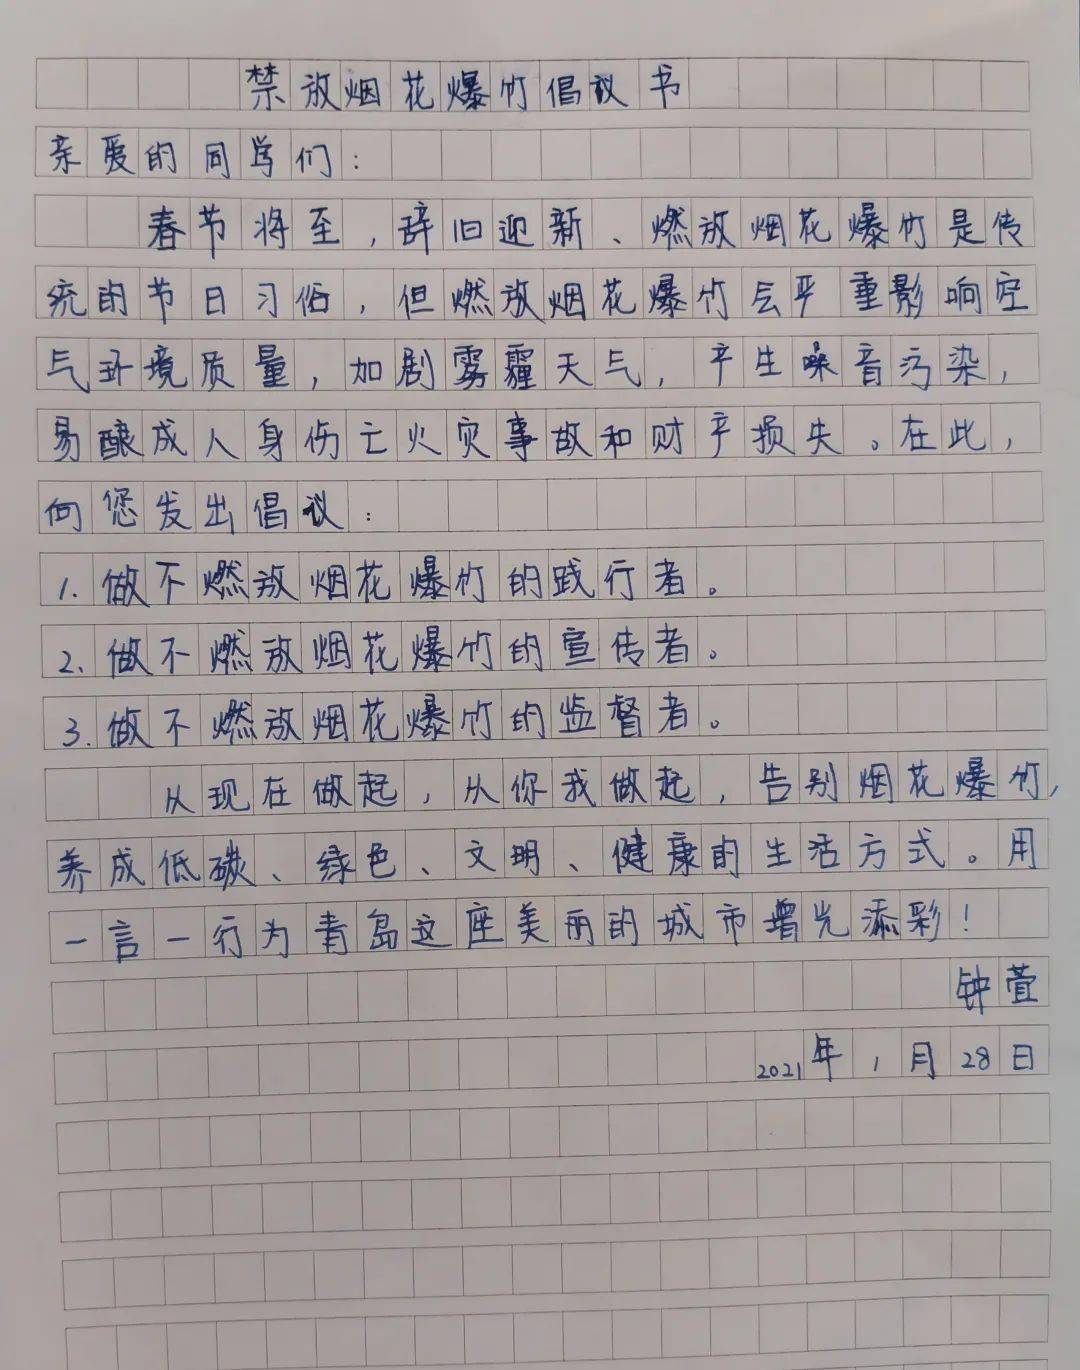 禁放烟花爆竹倡议书
亲爱的同学们：
春节将至，辞旧迎新、燃放烟花爆竹是传
统的节日习俗，但燃放烟花爆竹会严重影响空
气环境质量，加剧雾霾天气，产生噪音污染，
易酿成人身伤亡火灾事故和财产损失。在此，
向您发出倡议：
1.做不燃放烟花爆竹的践行者。
2.做不燃放烟花爆竹的宣传者。
3.做不燃放烟花爆竹的监督者。
从现在做起，从你我做起，告别烟花爆竹，
养成低碳、绿色、文明、健康的生活方式。用
一言一行为青岛这座美丽的城市增光添彩！
钟萱
2021年1月28日